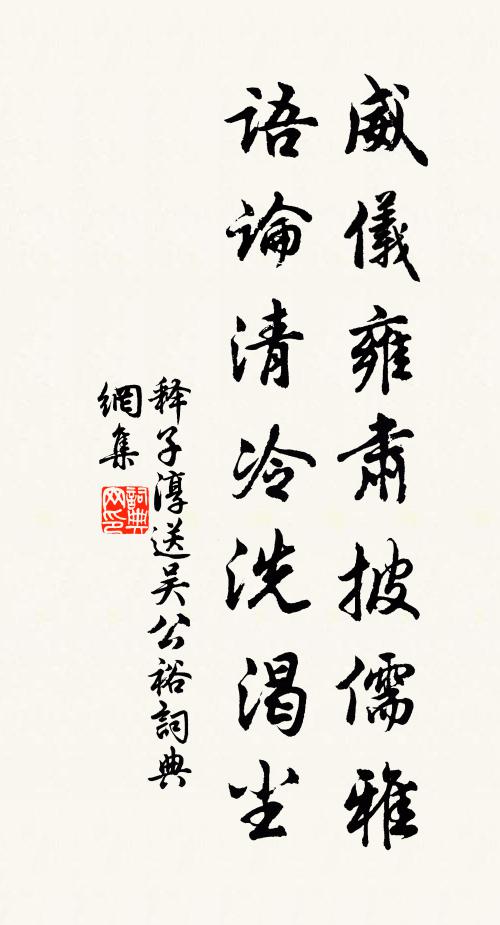 威儀雍肅披儒雅
語論清冷洗渴尘
释子淳送吴公裕詞典
網集
詞典
网印